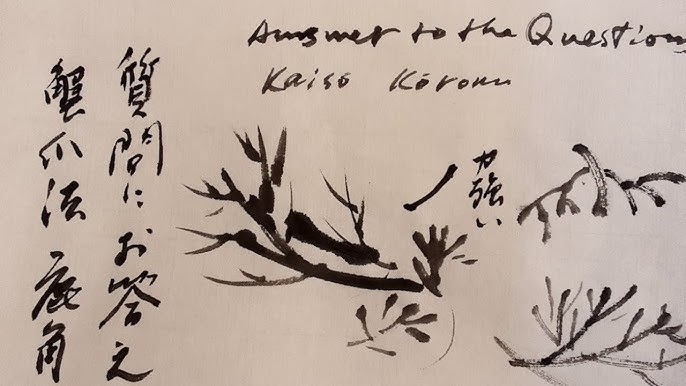 Answer to the Question
Kaisō
質問にお答え
蟹爪法 鹿角
力強い